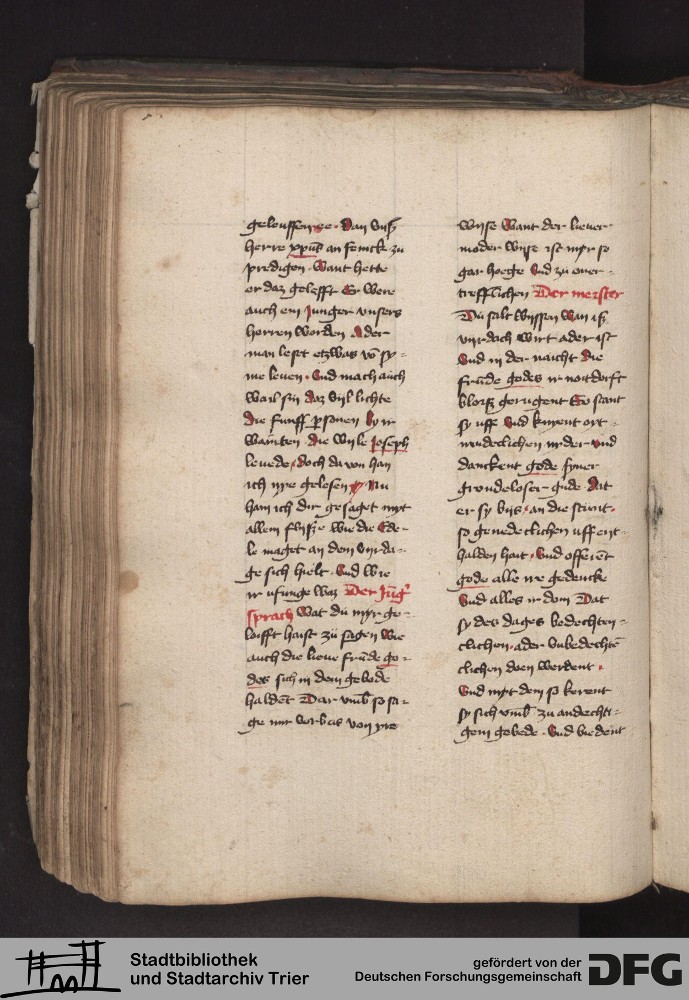 herre xpūs an fenck zu
predigen. Want hette
er daz gelefft Er were
auch ein Junger vnsers
herren worden. Ader
man lest etzwas vō sy-
me leuen. Vnd mach auch
wail sin daz vijl lichte
die funff psonen by ir
warnten. die wijle Joseph
leuede. doch da von han
ich nye gelesen Nu
han ich dir gesaget myt
allem flijsse wie die Ede-
le maget an dem vnrda-
ge sich hielt. Vnd wie
ir ufunge waz Der Jūg'
sprach Wat du myr ge-
loifft haist zu sagen Wie
auch die lieue frūde go-
des sich in dem gebede
haldēt Dar vmb so sa-
ge mir vorbas von yre
wijse Want der lieuer
moder wijse ist myr so
gar hoege Vnd zu ouer-
trefflichen Der meister
Du salt wijssen wan iß
myrdach wirt ader ist
Vnd in der naicht die
frūde godes ir noitdorft
bloiß gerugent So stant
sy uff Vnd knyent ort-
mudeclichen nyder vnd
danckent gode syner
grondeloser gude. Dat
er sy bijs an die stunt.
so genedeclichen uff ent-
halden hait. Vnd offerēt
gode alle ire gedencke
Vnd alles ir doin Dat
sy des dages bedechten-
clichen. ader vnbedechtē
clichen doen werdent.
Vnd myt dem so kerent
sy sich vmb zu andechti-
gem gebede. Vnd biedent
Stadtbibliothek
und Stadtarchiv Trier
gefördert von der
Deutschen Forschungsgemeinschaft
DFG